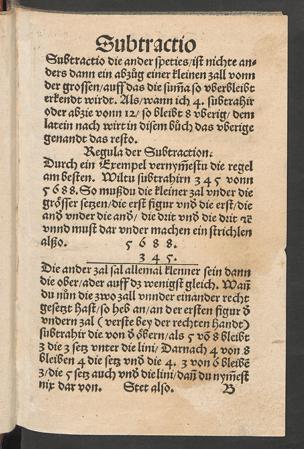 Subtractio
Subtractio die ander speties/ist nichts an-
ders dann ein abzůg einer kleinen zall vonn
der grossen/auff das die sum̃a so vberbleibt
erkendt wirdt. Als/wann ich 4. subtrahir
oder abzie vonn 12/so bleibt 8 vberig/dem
latein nach wirt in disem bůch das vberige
genandt das resto.
Regula der Subtraction.
Durch ein Exempel vernym̃estu die regel
am besten. Wiltu subtrahirn 3 4 5 vonn
5 6 8 8. So můßdu die kleiner zal vnder die
grősser setzen/die erst figur vnd̄ die erst/die
and̄ vnder die and̄/die drit vnd̄ die drit ꝛc̃
vnnd must dar vnder machen ein strichlen
alßo. 5 6 8 8.
3 4 5.
Die ander zal sal allemal klenner sein dann
die ober/ader auff dz wenigst gleich. Wañ
du nůn die zwo zall vnnder einander recht
gesetzt hast/so heb an/an der ersten figur d̄
vndern zal (verste bey der rechten handt)
subtrahir die von d̄ őbern/als 5 vō 8 bleibt
3 die 3 setz vnter die lini/Darnach 4 von 8
bleiben 4 die setz vnd̄ die 4. 3 von 6 bleibē
3/die 5 setz auch vnd̄ die lini/dañ du nym̃est
nix dar von. Stet also. B